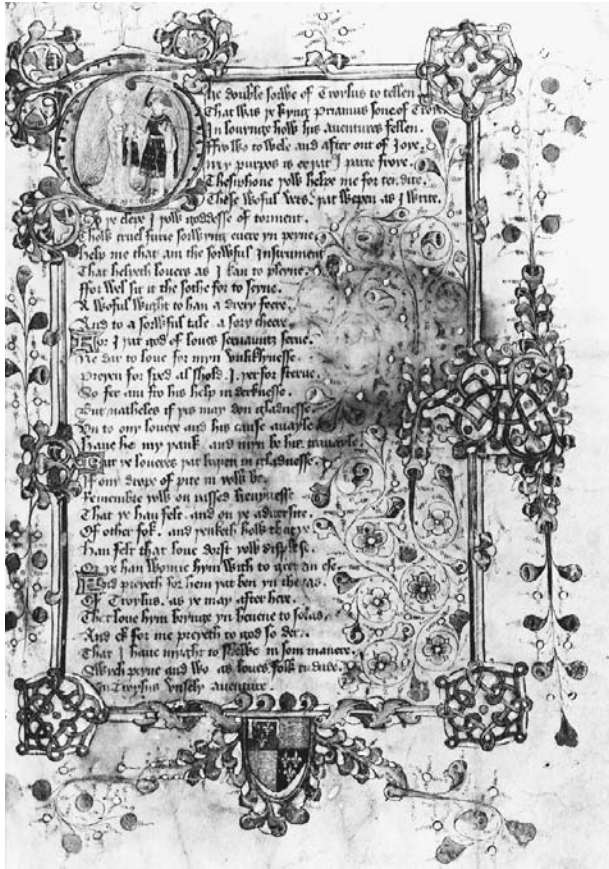 The double sorwe of Troylus to tellen
That was þe kyng Priamus sone of Troye
In louynge how his auentures fellen.
Ffro wo to wele and after out of Joye.
My purpos is er þat I parte froye.
Thesiphone þow helpe me for tendite.
These woful vers, þat wepen as I write.
To þe clepe I þow goddesse of torment.
Thow cruel furie sorwyng euere yn peyne
Help me that am the sorwful Instrument
That helpeth loueres as I kan to pleyne.
Ffor wel sit it the sothe for to seyne.
A woful wight to han a drery feere.
And to a sorwful tale a sory cheere.
For I þat god of loues seruauntz serue.
Ne dar to loue for myn vnliklynesse.
Preyen for sped al shold I þerfor sterue.
So fer am fro his help in derknesse.
But natheles if þis may don gladnesse.
Vn to ony louere and his cause auayle
Haue he my þank and myn be his trauayle.
But ye loueres þat in gladnesse.
If ony drope of pite in yow be.
Remembre yow on passed heuynesse
That ye han felt and on þe aduersite.
Of other folk. and þenketh how that ye
Han felt that loue dorst yow displese.
Or ye han wonne hym with to gret an ese.
And preyeth for hem þat ben yn the cas.
Of Troylus. as ye may after here.
That loue hem brynge yn heuene to solas.
And ek for me preyeth to god so dere.
That I haue myght to shewe in som manere.
Swych peyne and wo as loues folk endure.
In Troylus vnsely auenture.